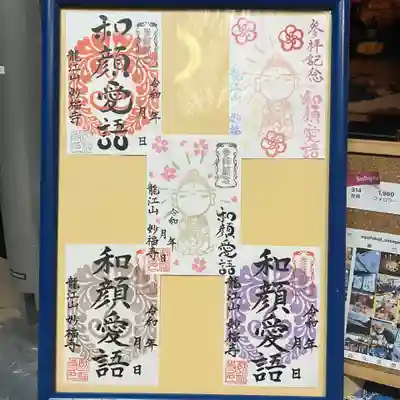 和顔愛語
令和 年 月 日
龍江山 妙福寺
参拝記念
和顔愛語
龍江山 妙福寺
和顔愛語
令和 年 月 日
龍江山 妙福寺
和顔愛語
令和 年 月 日
龍江山 妙福寺
和顔愛語
令和 年 月 日
龍江山 妙福寺
314
7,960
フォロワー